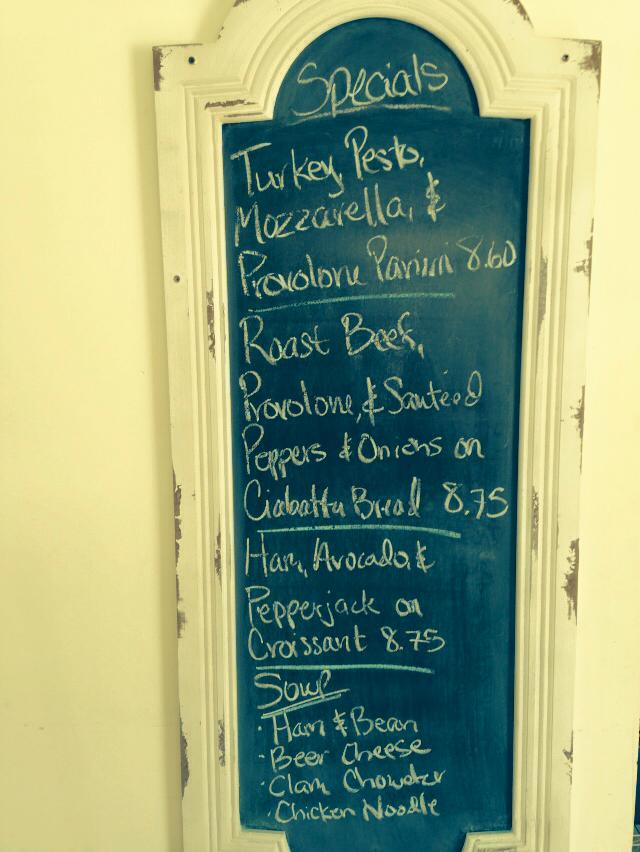 Specials
Turkey, Pesto,
Mozzarella, &
Provolone Panini 8.60
Roast Beef,
Provolone, & Sauteed
Peppers & Onions on
Ciabatta Bread 8.75
Ham, Avocado, &
Pepperjack on
Croissant 8.75
Soup
· Ham & Bean
· Beer Cheese
· Clam Chowder
· Chicken Noodle